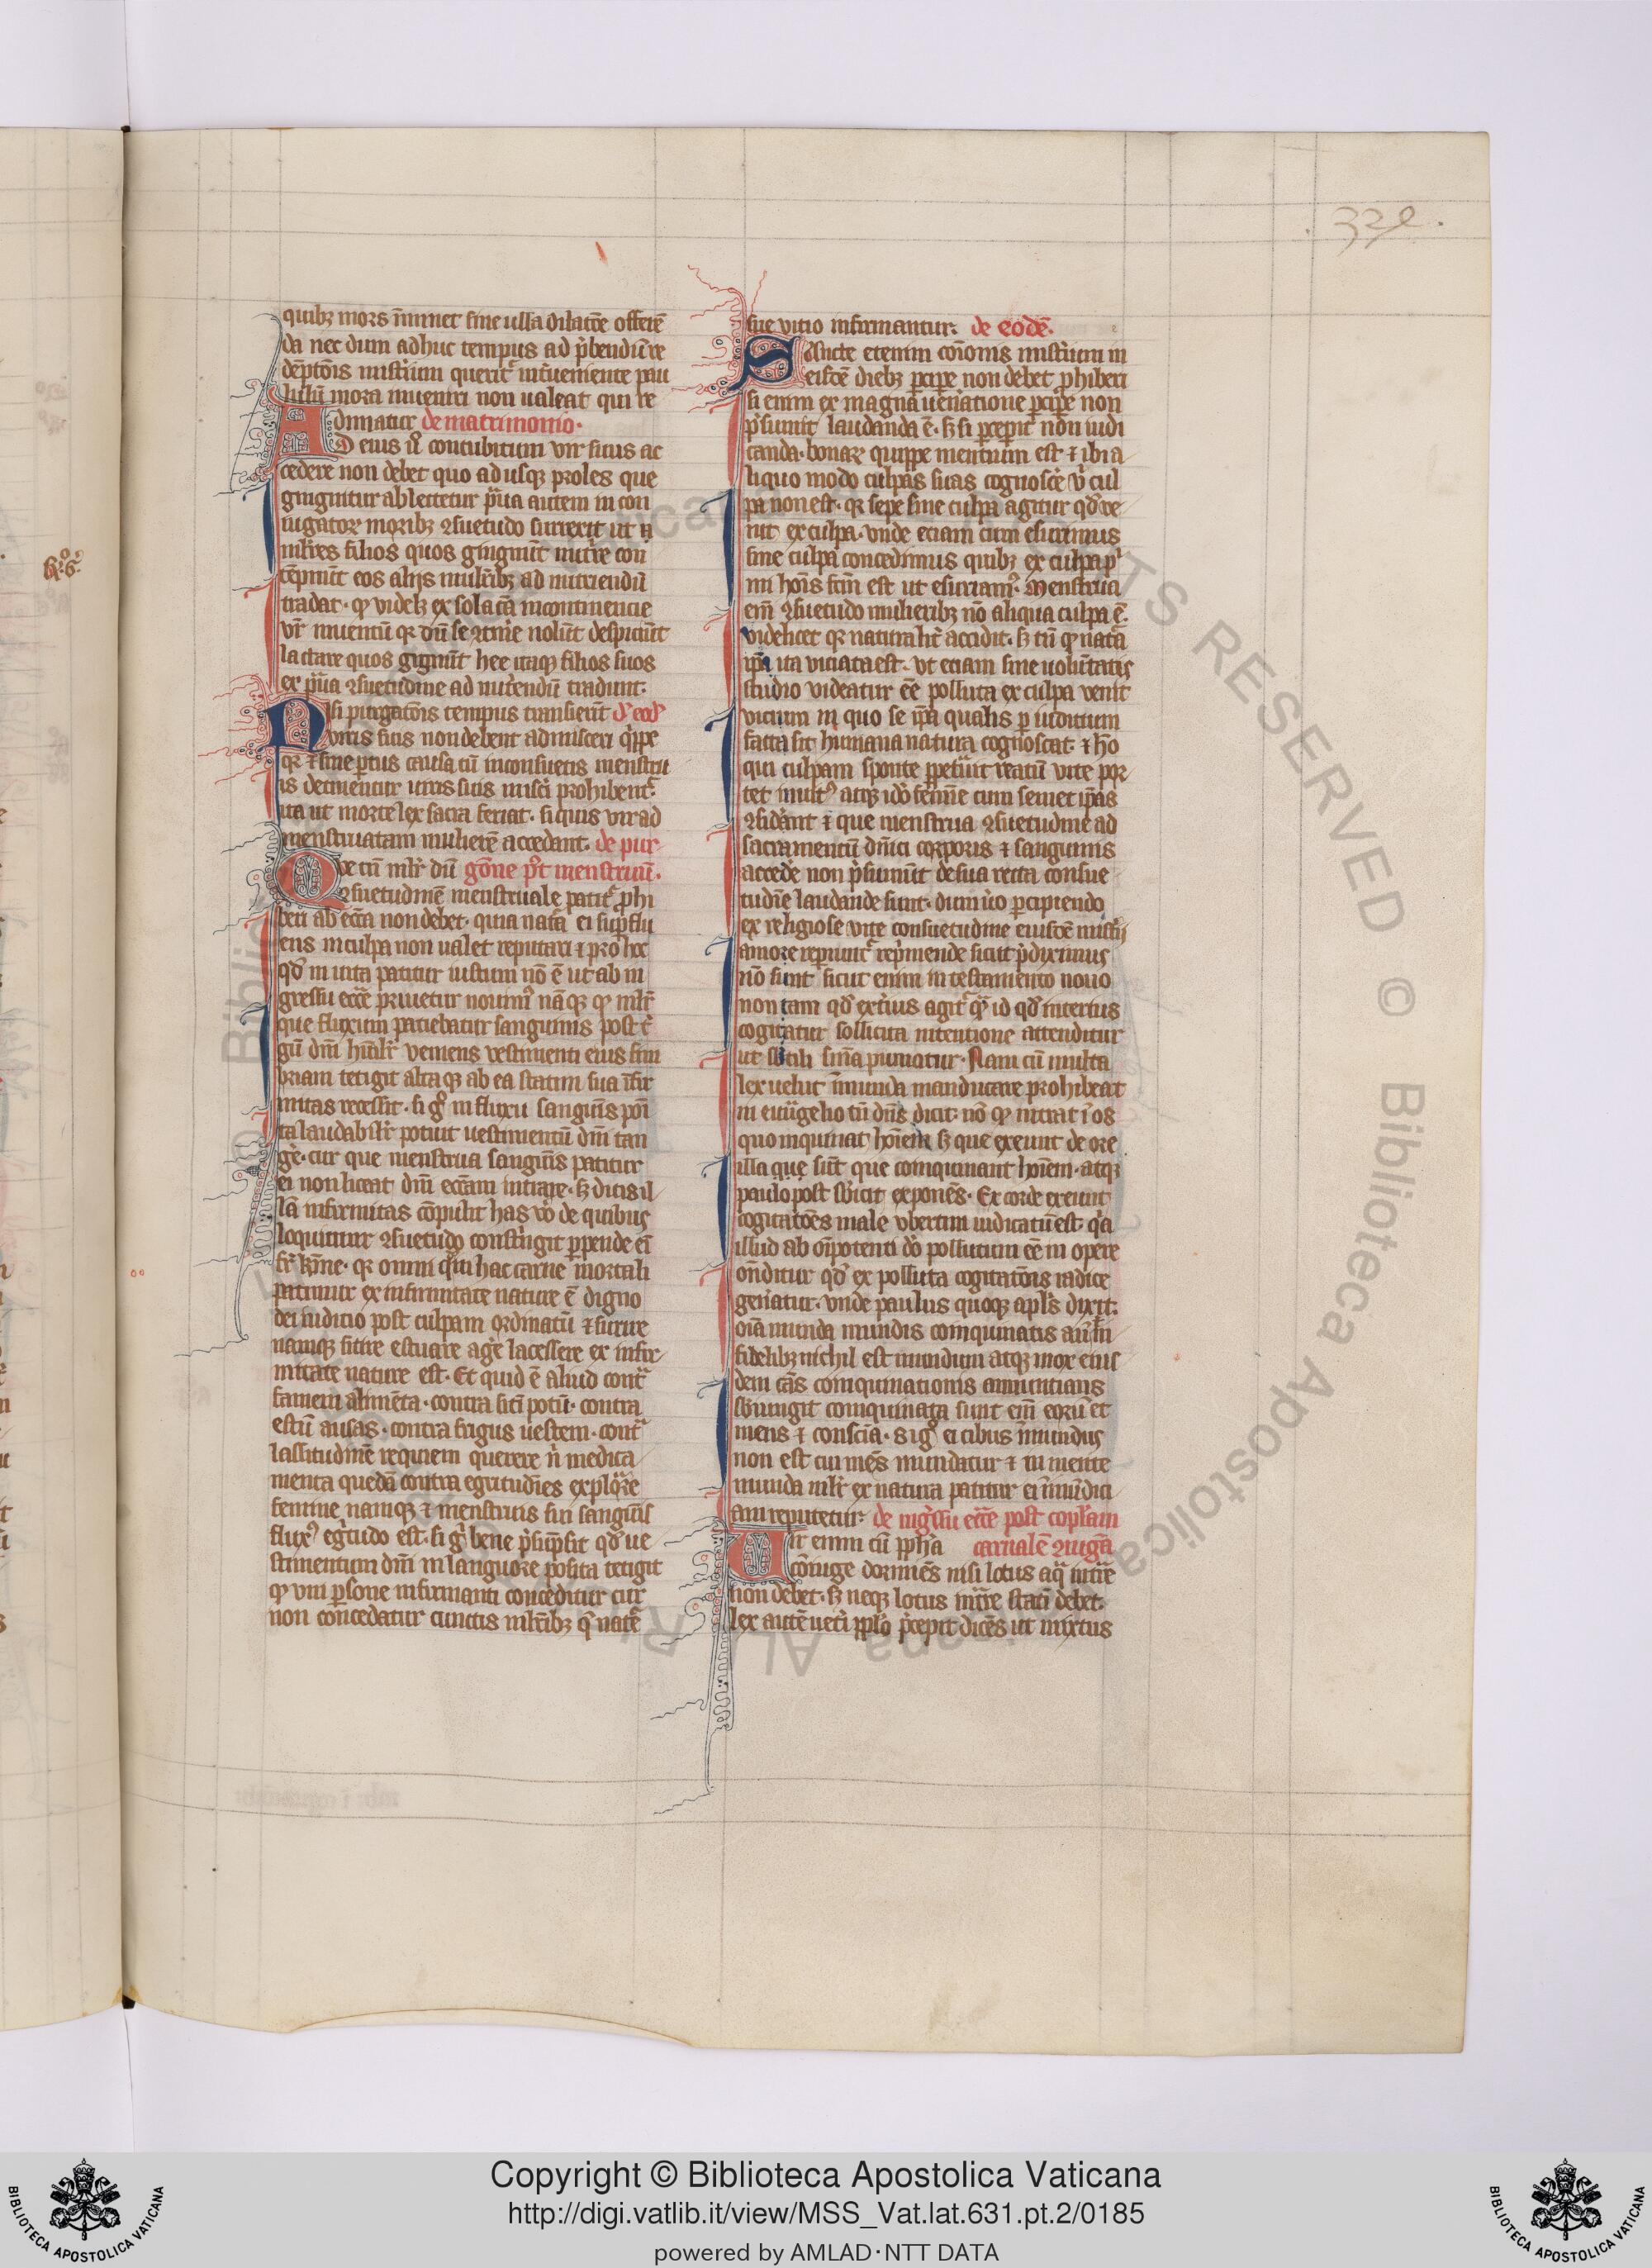 .332.
quibꝫ mors īminet sine ulla dilatōe offerē
da nec dum adhuc tempus ad p̄bendiū re
dēptōis mist̄ium querit᷑ int̄ueniente pau
lulū mora inueniri non ualeat qui re
dimatur de matrimonio.
AD eius u̾ concubitum vir suus ac
cedere non debet quo adusqꝫ proles que
gingnitur ablectetur p̄ua autem in con
iugatoꝝ moribꝫ ꝯsuetudo surrexit ut
mulieres filios quos gingnūt nut̄re con
tēpnūt eos aliis mulieribꝫ ad nutriendū
tradat. qꝫ videlꝫ ex sola cā incontinencie
vr̄ inuentū qꝛ dū se ꝯtin̄e nolūt despiciūt
lactare quos gignūt hee itaqꝫ filios suos
ex p̄ua ꝯsuetudine ad nut̄endū tradunt.
Nisi purgatōis tempus transierit d̾ eod̾
viris suis non debent admisceri q̄ppe
qꝛ ⁊ sine ꝑtus causa cū inconsuetis menstru
is detinentur uiris suis misc̄i prohibent᷑
ita ut morte lex sacra feriat. si quis vir ad
menstruatam mulierē accedant. de pur
Que cū ml̄r dū gōne p̾t menstruū.
ꝯsuetudinē menstruale patit᷑ ꝓhi
beri ab eccā non debet. quia nat̄a ei suꝑflu
ens in culpa non ualet reputari ⁊ pro hoc
qd̾ in uita patitur iustum nō ē ut ab in
gressu ecc̄e priuetur nouim᷒ nāqꝫ qꝫ ml̄r
que fluxum patiebatur sanguinis post t̾
gū dn̄i hūil̄r veniens vestimenti eius fim
briam tetigit altaqꝫ ab ea statim sua īfir
mitas recessit. si g̾ in fluxu sanguīs posi
ta laudabil̄r potuit uestimentū dn̄i tan
ge̾. cur que menstrua sanguīs patitur
ei non liceat dn̄i eccāam intrare. sꝫ dicis il
lā infirmitas cōpulit has vo̾ de quibus
loquimur ꝯsuetudo constringit ꝑpende ei
fr̄ kr̄me. qꝛ omne q̾ in hac carne mortali
patimur ex infirmitate nature ē digno
dei iudicio post culpam ordinatū esurire
namqꝫ sitire estuare alge̾ lacessere ex infir
mitate nature est. Et quid ē aliud cont̄
famem alimēta. contra sitī potū. contra
estū auras. contra frigus uestem. cont̄
lassitudinē requiem querere n̾ medica
menta quedā contra egritudīes explorare
femine namqꝫ ⁊ menstruus sui sanguīs
flux᷒ eg̾tudo est. si g̾ bene p̄sūpsit qd̾ ue
stimentum dn̄i in languore posita tetigit
qꝫ vni ꝑsone infirmanti conceditur cur
non concedatur cunctis ml̄ribꝫ q̄ natē
sue vitio infirmantur. de eodē.
SAncte etenim cōionis mist̄ium in
eisdē diebꝫ ꝑcipe̾ non debet ꝓhiberi
si enim ex magna uen̄atione ꝑcipe̾ non
p̄sumit laudanda ē. sꝫ si ꝑcepit non iudi
canda. bonaꝝ quippe mentium est ⁊ ibi a
liquo modo culpas suas cognosce̾ v̾ cul
pa non est. qꝛ sepe sine culpa agitur qd̾ ve
nit ex culpa. vnde eciam cum esurimus
sine culpa concedimus quibꝫ ex culpa p̾
mi hoīs fc̄m est ut esuriam᷒. Menstrua
em̄ ꝯsuetudo mulieribꝫ nō aliqua culpa ē.
videlicet qꝛ naturalit̄ accidit. sꝫ tn̄ qꝫ nat̄a
ip̄a ita viciata est. vt eciam sine uolūtatis
studio videatur ēe polluta ex culpa venit
vicium in quo se ip̄a qualis ꝑ iudicium
facta sit humana natura cognoscat. ⁊ hō
qui culpam sponte ꝑpet̄uit reatū vite por
tet inuit᷒ atqꝫ ido̾ femīe cum semet ip̄as
ꝯsid̄ant ⁊ que menstrua ꝯsuetudine ad
sacramentū dn̄ici corporis ⁊ sanguinis
accede̾ non p̄sumūt de sua recta consue
tudīe laudande sunt. dum u̾o ꝑcipiendo
ex religiose vite consuetudine eiusdē mist̄ii
amore rapiunt᷑ rep̄mende sicut p̄diximus
nō sunt sicut enim in testamento nouo
non tam qd̾ ext̄ius agit᷑ q̄ id qd̾ interius
cogitatur sollicita intentione attenditur
ut sb̄tili sn̄ia puniatur. Nam cū multa
lex uelut īmunda manducare prohibeat
in eūāgelio tn̄ dn̄s dicit. nō qꝫ intrat ī os
quoinquinat hoīem sꝫ que exeunt de ore
illa que sūt que coinquinant hoīem. atqꝫ
paulo post sb̄icit exponēs. Ex corde exeunt
cogitatōes male vbertim iudicatū est q̾a
illud ab oīpotenti do̾ pollutum ēe in opere
on̄ditur qd̾ ex polluta cogitatōis radice
gen̄atur. vnde paulus quoqꝫ apl̄s dixit.
oīa munda mundis coinquinatis aūt ⁊ in
fidelibꝫ nichil est mundum atqꝫ mox eius
dem cās coinquinationis annuntians
sb̄iungit coinquinata sunt em̄ eoꝝ et
mens ⁊ conscīa. Si g̾ ei cibus īmundus
non est cui mēs mundatur ⁊ in mente
munda ml̄r ex natura patitur ei īmūdici
am reputetur. de ing̾ssu ecc̄e post copl̄am
Vir enim cū ꝓph̄a carnalē ꝯiugē
cōiuge dormiēs nisi lotus aq̄ int̄re
non debet. sꝫ neqꝫ lotus int̄re stati debet.
lex autē uet̄i ppl̄o p̄cepit dicēs ut mixtus
K.o.s.
Copyright © Biblioteca Apostolica Vaticana
http://digi.vatlib.it/view/MSS_Vat.lat.631.pt.2/0185
powered by AMLAD·NTT DATA
BIBLIOTECA APOSTOLICA VATICANA
BIBLIOTECA APOSTOLICA VATICANA